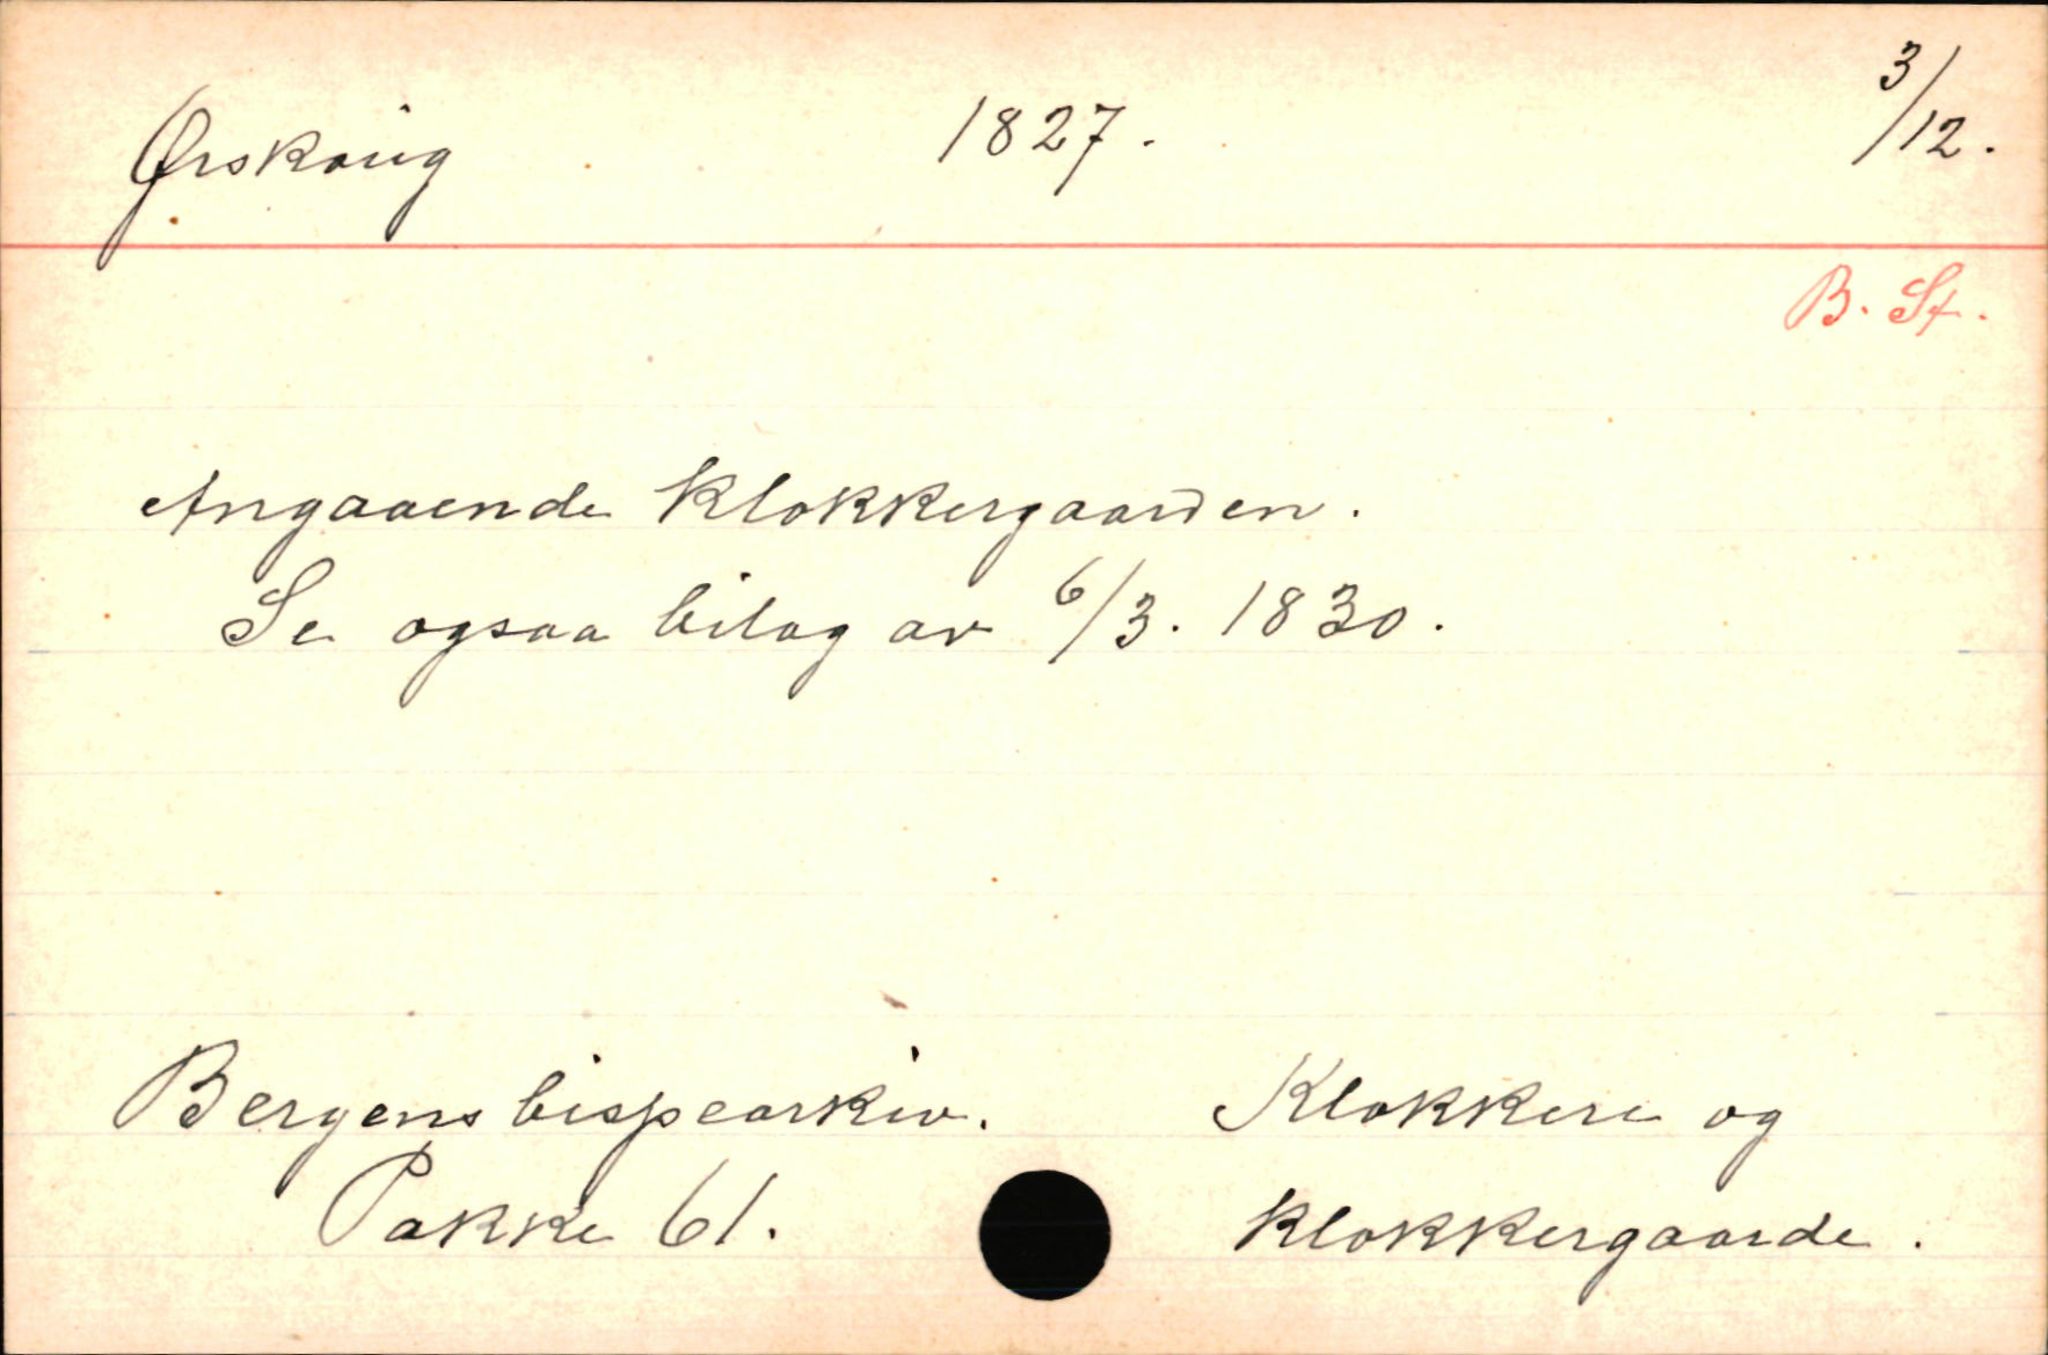 Ørskoug 1827. 3/12.
B. St.
Angaaende klokkergaarden.
Se ogsaa bilag av 6/3. 1830.
Bergens bispearkiv. Klokkere og
Pakke 61. klokkergaarde.